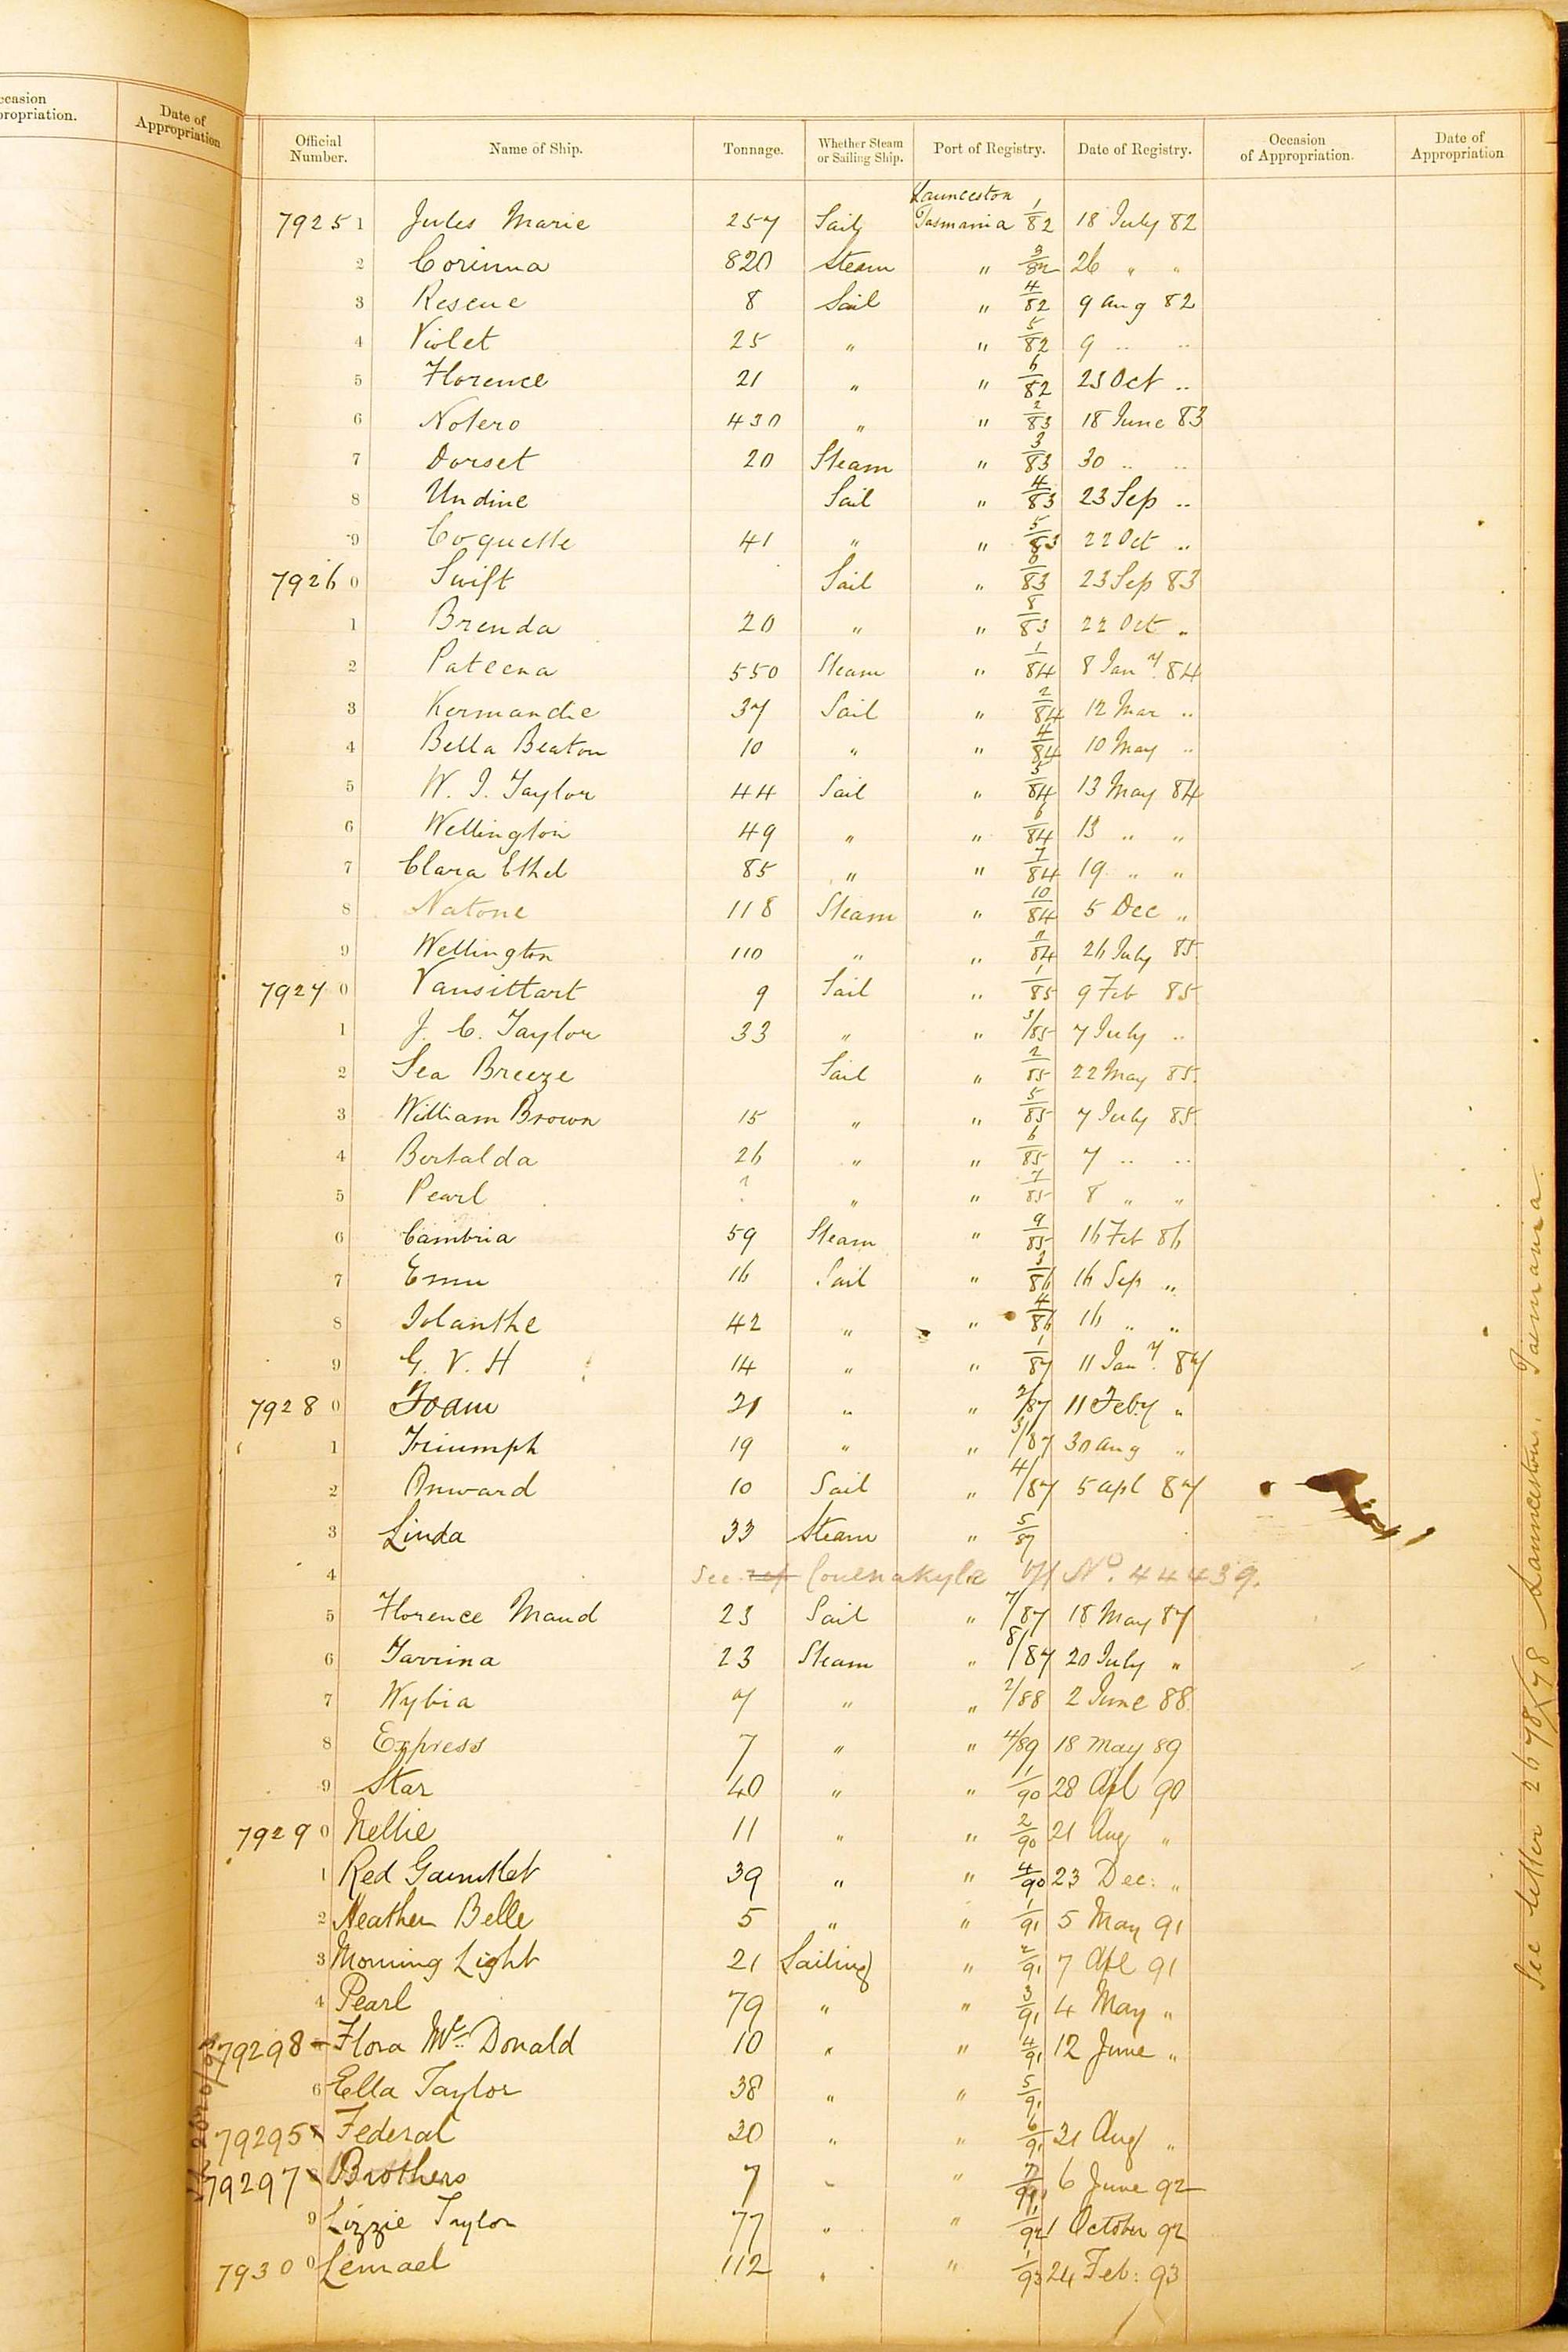 ccasion
propriation.
Date of
Appropriation
Official
Number.
Name of Ship.
Tonnage.
Whether Steam
or Sailing Ship.
Port of Registry.
Date of Registry.
Occasion
of Appropriation.
Date of
Appropriation
Launceston
79251 Jules Marie 257 Sail Tasmania 1/82 18 July 82
2 Corinna 820 Steam " 3/82 26 " "
3 Rescue 8 Sail " 4/82 9 Aug 82
4 Violet 25 " " 5/82 9 " "
5 Florence 21 " " 6/82 25 Oct "
6 Notero 430 " " 2/83 18 June 83
7 Dorset 20 Steam " 3/83 30 " "
8 Undine Sail " 4/83 23 Sep "
9 Coquette 41 " " 5/83 22 Oct "
79260 Swift Sail " 83 23 Sep 83
1 Brenda 20 " " 8/83 22 Oct "
2 Pateena 550 Steam " 1/84 8 Jany. 84
3 Kermandie 37 Sail " 2/84 12 Mar "
4 Bella Beaton 10 " " 4/84 10 May "
5 W. I. Taylor 44 Sail " 5/84 13 May 84
6 Wellington 49 " " 6/84 13 " "
7 Clara Ethel 85 " " 7/84 19 " "
8 Natone 118 Steam " 10/84 5 Dec "
9 Wellington 110 " " 11/84 26 July 85.
79270 Vansittart 9 Sail " 1/85 9 Feb 85
1 J. C. Taylor 33 " " 3/85 7 July "
2 Sea Breeze Sail " 2/85 22 May 85.
3 William Brown 15 " " 5/85 7 July 85.
4 Bertalda 26 " " 6/85 7 " "
5 Pearl ? " " 7/85 8 " "
6 Cambria 59 Steam " 9/85 16 Feb 86
7 Emu 16 Sail " 3/86 16 Sep "
8 Iolanthe 42 " " 4/86 16 " "
9 G. V. H 14 " " 1/87 11 Jany. 87
79280 Foam 21 " " 2/87 11 Feby "
1 Triumph 19 " " 3/87 30 Aug "
2 Onward 10 Sail " 4/87 5 Apl 87
3 Linda 33 Steam " 5/87
4 See No. 44439.
5 Florence Maud 23 Sail " 7/87 18 May 87
6 Tarrina 23 Steam " 8/87 20 July "
7 Wybia 7 " " 2/88 2 June 88
8 Express 7 " " 4/89 18 May 89
9 Star 40 " " 1/90 28 Apl 90
79290 Nellie 11 " " 2/90 21 Aug "
1 Red Gauntlet 39 " " 4/90 23 Dec: "
2 Heather Belle 5 " " 1/91 5 May 91
3 Morning Light 21 Sailing " 2/91 7 Apl 91
4 Pearl 79 " " 3/91 4 May "
79298 Flora Mc Donald 10 " " 4/91 12 June "
6 Ella Taylor 38 " " 5/91
79295 Federal 30 " " 6/91 21 Aug "
79297 Brothers 7 " " 7/91 6 June 92
9 Lizzie Taylor 77 " " 11/92 1 October 92
79300 Lemael 112 " " 1/93 24 Feb: 93
See letter 2678/78 Launceston. Tasmania.